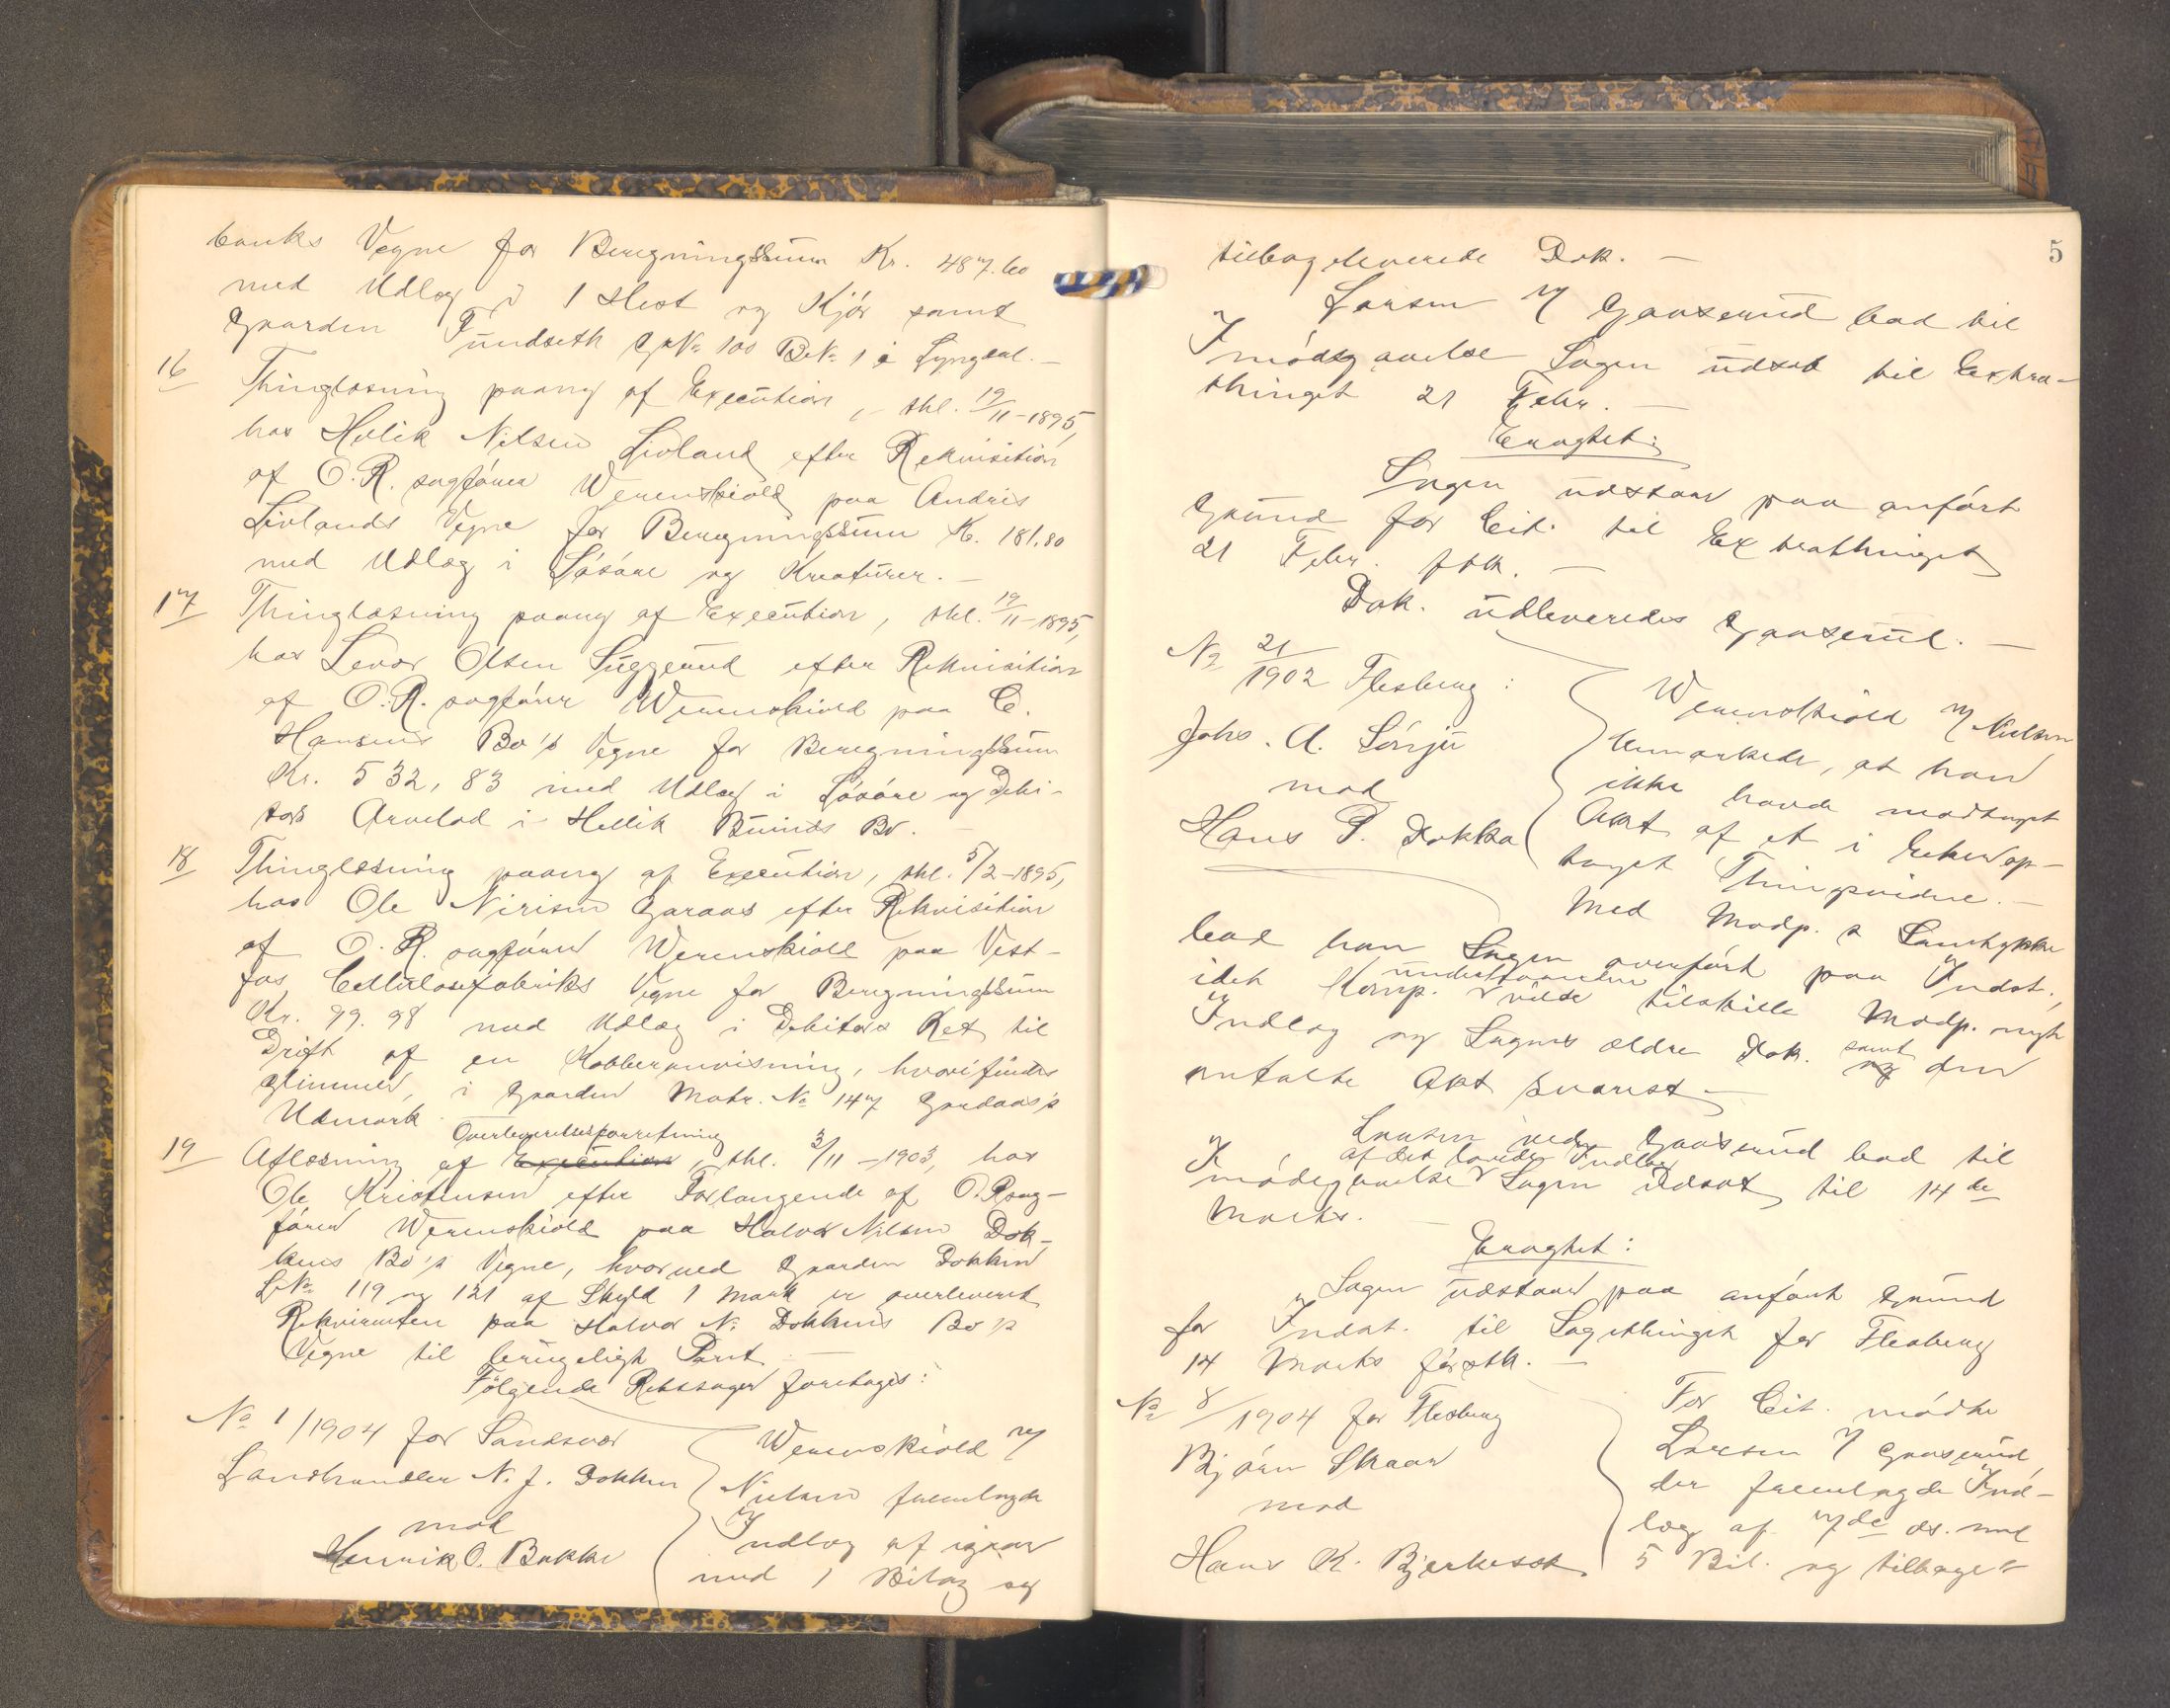 banks Vegne for Beregningssum Kr. 487.60
med Udlæg i 1 Hest og Kjør samt
Gaarden Tundseth GNo 100 BNo 1 i Lyngdal. –
16 Thinglæsning paany af Execution, thl. 19/11–1895,
hos Helik Nilsen Livland efter Rekvisition
af O.R.sagfører Werenskiold paa Andris
Livlands Vegne for Beregningssum Kr. 181.80
med Udlæg i Løsøre og Kreaturer. –
17 Thinglæsning paany af Execution, thl. 19/11–1895,
hos Levor Olsen Suggerud efter Rekvisition
af O.R.sagfører Werenskiold paa C.
Hansens Bo's Vegne for Beregningssum
Kr. 532,83 med Udlæg i Løsøre og Debi-
tors Arvelod i Hellik Bruruds Bo. –
18 Thinglæsning paany af Execution, thl. 5/2–1895,
hos Ole Nirisen Garaas efter Rekvisition
af O.R.sagfører Werenskiold paa Vest-
fos Cellulosefabriks Vegne for Beregningssum
Kr. 99.98 med Udlæg i Debitors Ret til
Drift af en Kobberanvisning, hvori findes
Glimmer, i Gaarden Matr. No 147 Gardaas's
Udmark.
Overleverelsesforretning
19 Aflæsning af Execution, thl. 3/11–1903, hos
Ole Kristensen efter Forlangende af O.R.sag-
fører Werenskiold paa Halvor Nilsen Dok-
kens Bo's Vegne, hvorved Gaarden Dokken
LNo 119 og 121 af Skyld 1 Mark er overleveret
Rekvirenten paa Halvor N. Dokkens Bo's
Vegne til brugeligt Pant. –
Følgende Retssager foretoges:
No 1/1904 for Sandsvær
Landhandler N. J. Dokken
mod
Henrik O. Bakke
Werenskiold v/
Nielsen fremlagde
Indlæg af igaar
med 1 Bilag og
5
tilbageleverede Dok. –
Larsen v/ Gaaserud bad til
Imødegaaelse Sagen udsat til Extra-
thinget 21 Febr. –
Eragtet:
Sagen udstaar paa anført
Grund for Cit. til Extrathinget
21 Febr. fstk. –
Dok. udleveredes Gaaserud. –
No 21/1902 Flesberg:
Johs. A. Sørgju
mod
Hans P. Dokka
Werenskiold v/ Nielsen
bemærkede, at han
ikke havde modtaget
Akt af et i Eker op-
taget Thingsvidne. –
Med Modp.s Samtykke
bad han Sagen overført paa Indst.,
idet Komp. underhaanden vilde tilstille Modp. nyt
Indlæg og Sagens ældre Dok. samt og den
omtalte Akt snarest. –
Larsen ved Gaaserud bad til
Imødegaaelse af det lovede Indlæg Sagen udsat til 14de
Marts. –
Eragtet:
Sagen udstaar paa anført Grund
for Indst. til Sagethinget for Flesberg
14 Marts førstk. –
No 8/1904 for Flesberg
Bjørn Skaar
mod
Hans K. Bjerkeset
For Cit. mødte
Larsen v/ Gaaserud,
der fremlagde Ind-
læg af 7de ds. med
5 Bil. og tilbage-